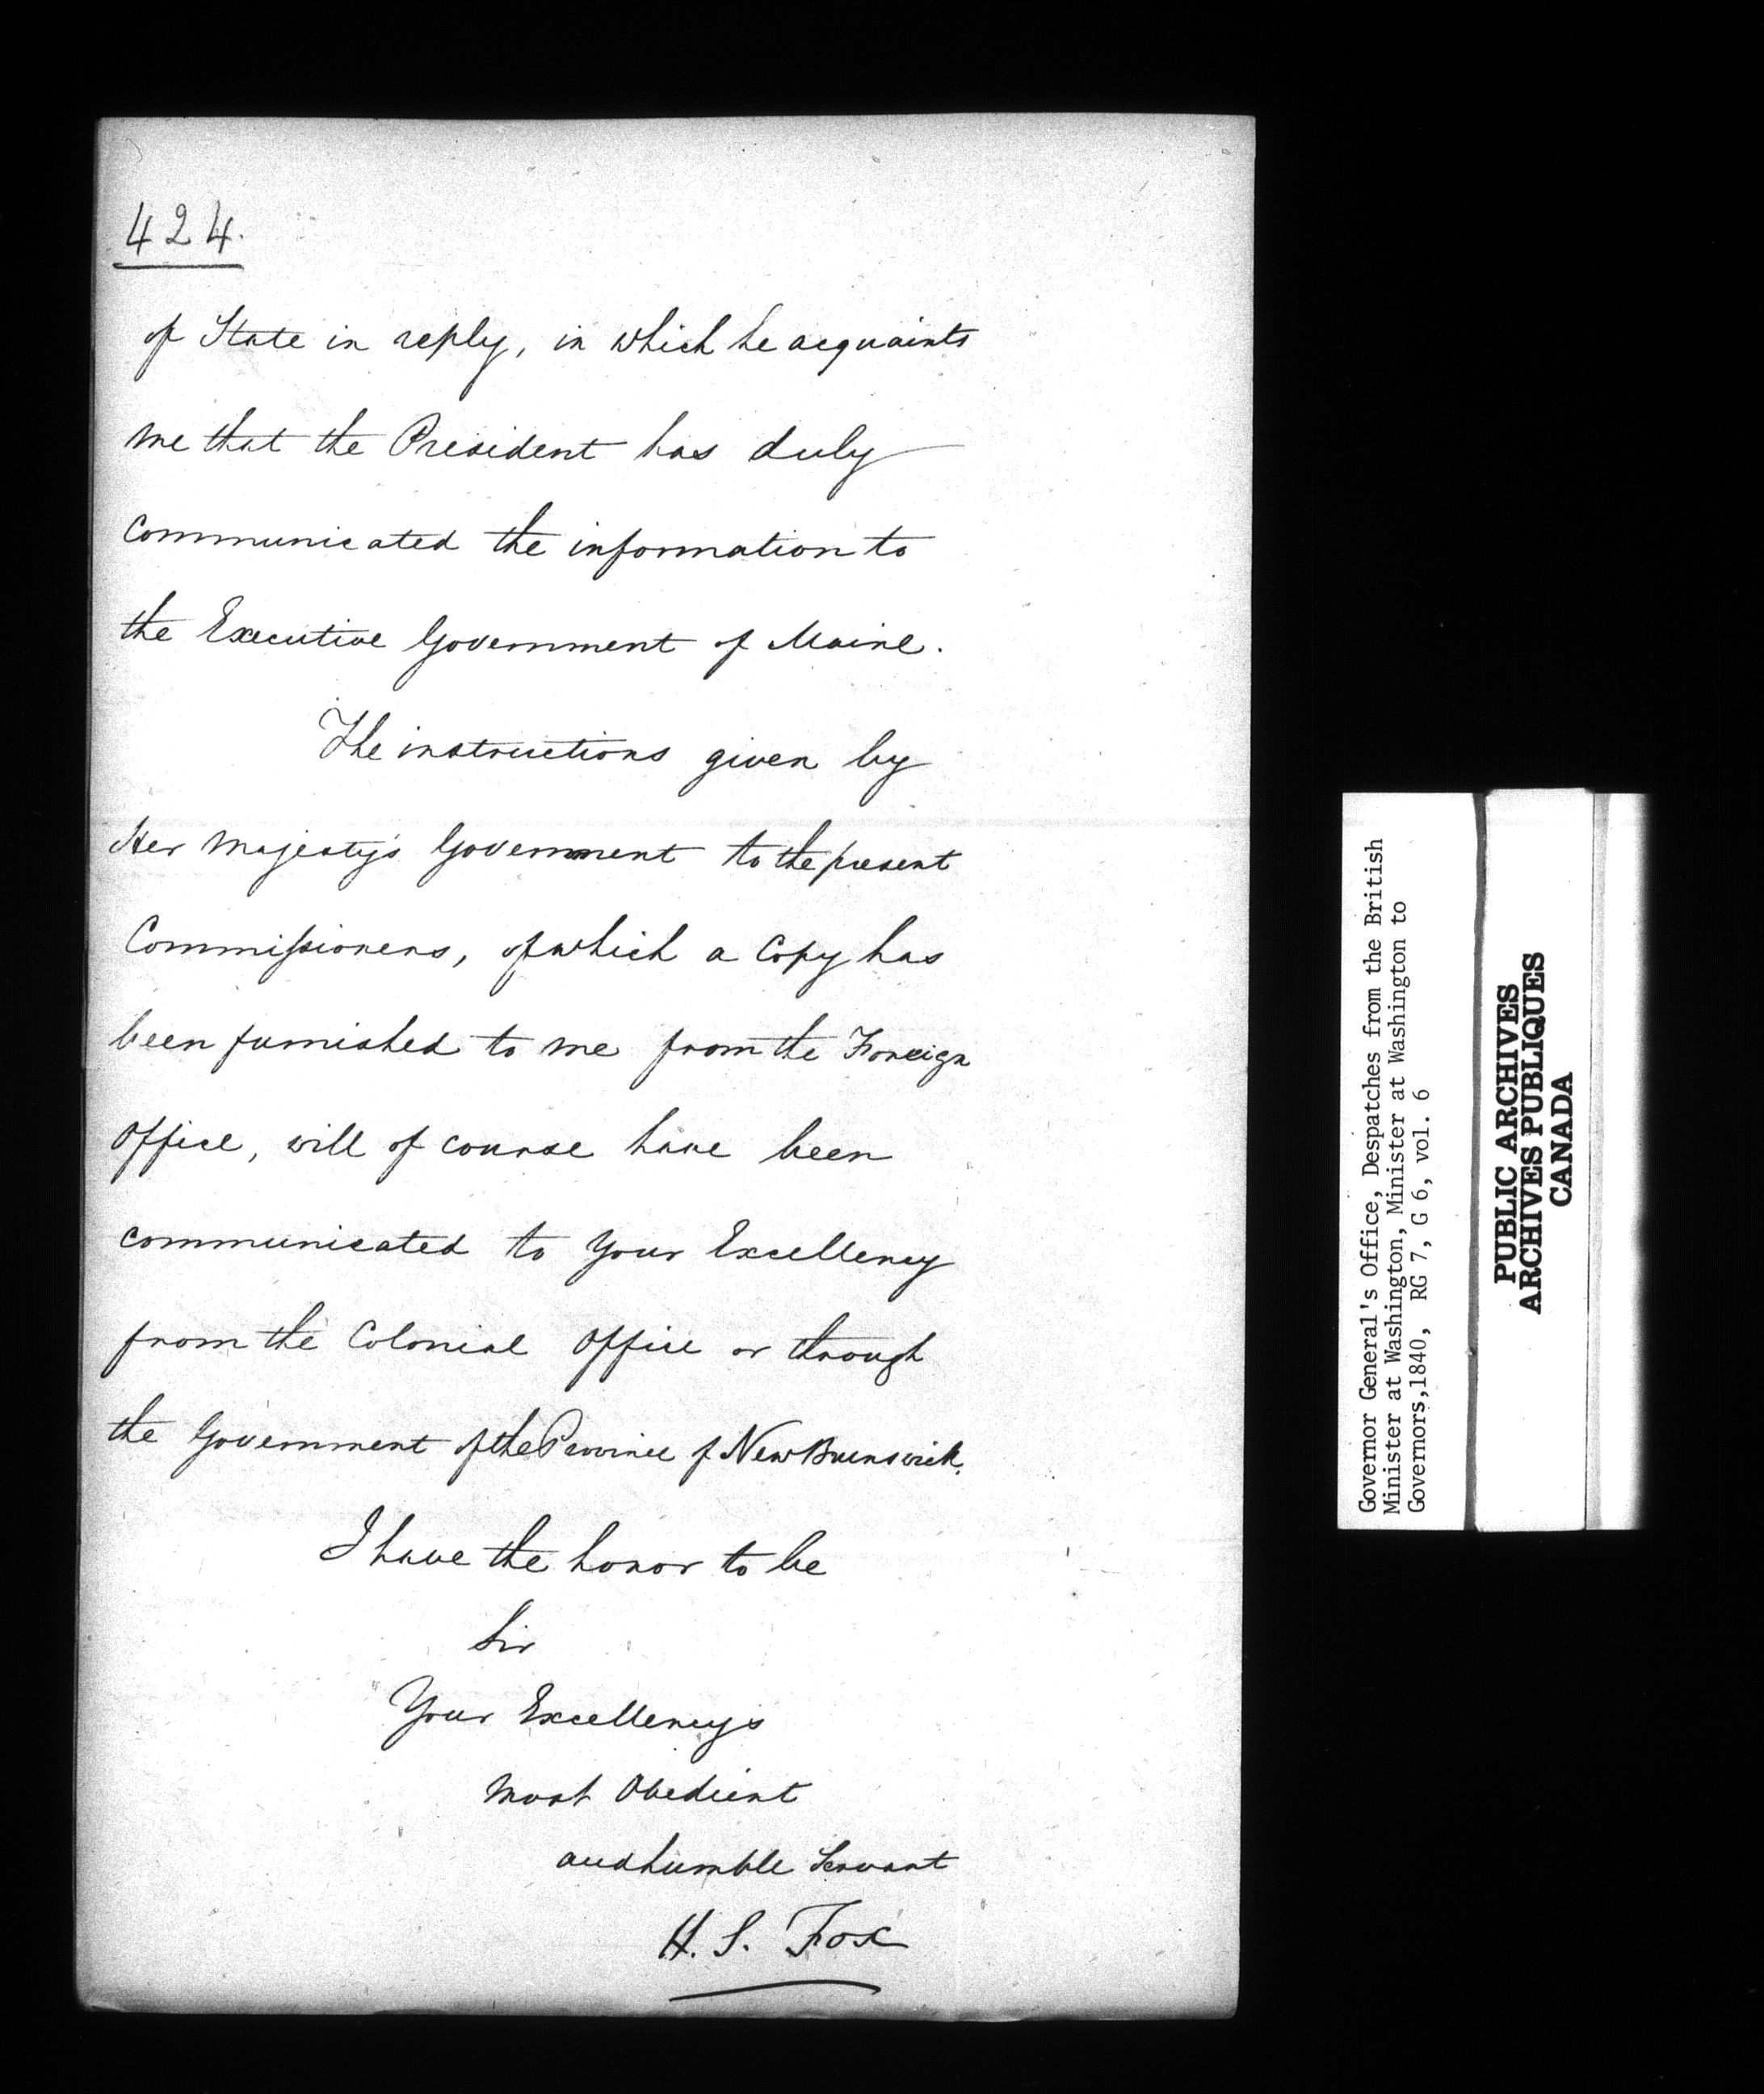 424.
of State in reply, in which he acquaints
me that the President has duly
communicated the information to
the Executive Government of Maine.
The instructions given by
Her Majesty's Government to the present
Commissioners, of which a Copy has
been furnished to me from the Foreign
Office, will of course have been
communicated to Your Excellency
from the Colonial Office or through
the Government of the Province of New Brunswick.
I have the honor to be
Sir
Your Excellency's
Most Obedient
and humble Servant
H. S. Fox
Governor General's Office, Despatches from the British
Minister at Washington, Minister at Washington to
Governors,1840, RG 7, G 6, vol. 6
PUBLIC ARCHIVES
ARCHIVES PUBLIQUES
CANADA